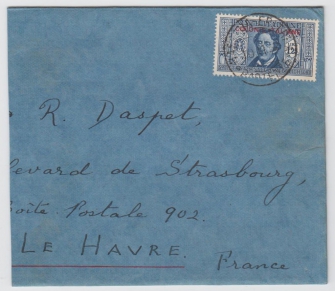 R. Daspet,
levard de Strasbourg,
Boîte Postale 902.
LE HAVRE.
France